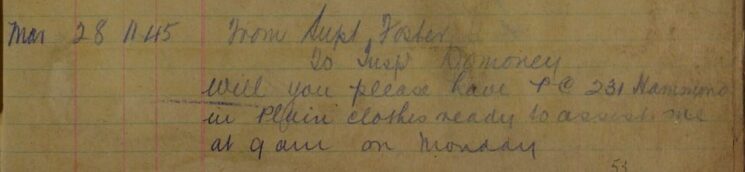 Mar 28 11 45 From Supt Foster
To Insp Domoney
Will you please have PC 231 Hammond
in Plain clothes ready to assist me
at 9 am on Monday
53